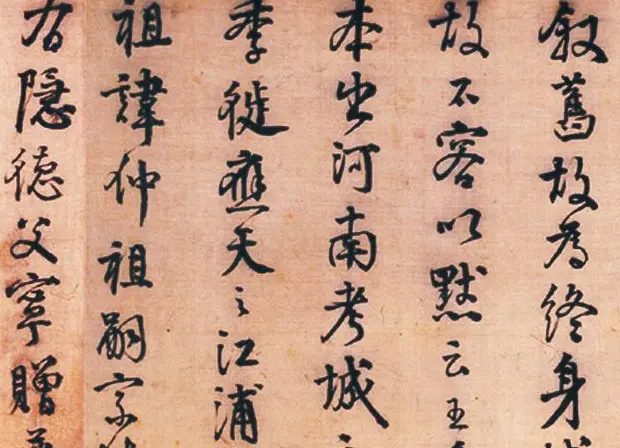 叙舊故為終身
故不容以默云王
本出河南考城之
季徙應天之江浦
祖諱仲祖嗣宗
有隱德父寧贈